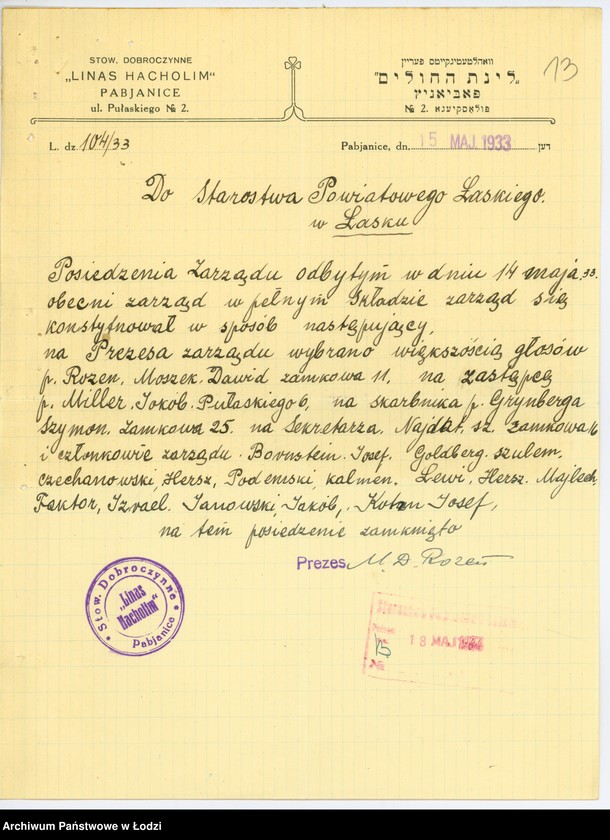 STOW. DOBROCZYNNE
„LINAS HACHOLIM“
PABJANICE
ul. Pułaskiego № 2.
וואהלטעטיגקייטס פעריין
„לינת החולים“
פאביאניץ
פולאסקיעגא № 2.
13
L. dz. 104/33
Pabjanice, dn. 15 MAJ. 1933 דען
Do Starostwa Powiatowego Łaskiego.
w Łasku
Posiedzenia Zarządu odbytym w dniu 14 maja 33.
obecni zarząd w pełnym składzie zarząd się
konstytnował w sposób następujący,
na Prezesa zarządu wybrano większością głosów
p. Rozen, Moszek. Dawid zamkowa 11, na zastępcę
p. Miller, Jokob. Pułaskiego 6, na skarbnika p. Grynberga
Szymon, Zamkowa 25. na Sekretarza, Najdat, sz. Zamkowa 16
i członkowie zarządu. Bornstein. Josef, Goldberg. szulem,
czechanowski, Hersz, Podemski, kalmen, Lewi, Hersz. Majlech,
Faktor, Izrael. Janowski, Jakób, Koten Josef,
na tem posiedzenie zamknięto
Prezes M. D. Rozen
Stow. Dobroczynne
„Linas
Hacholim“
Pabjanice
18 MAJ
№
Archiwum Państwowe w Łodzi